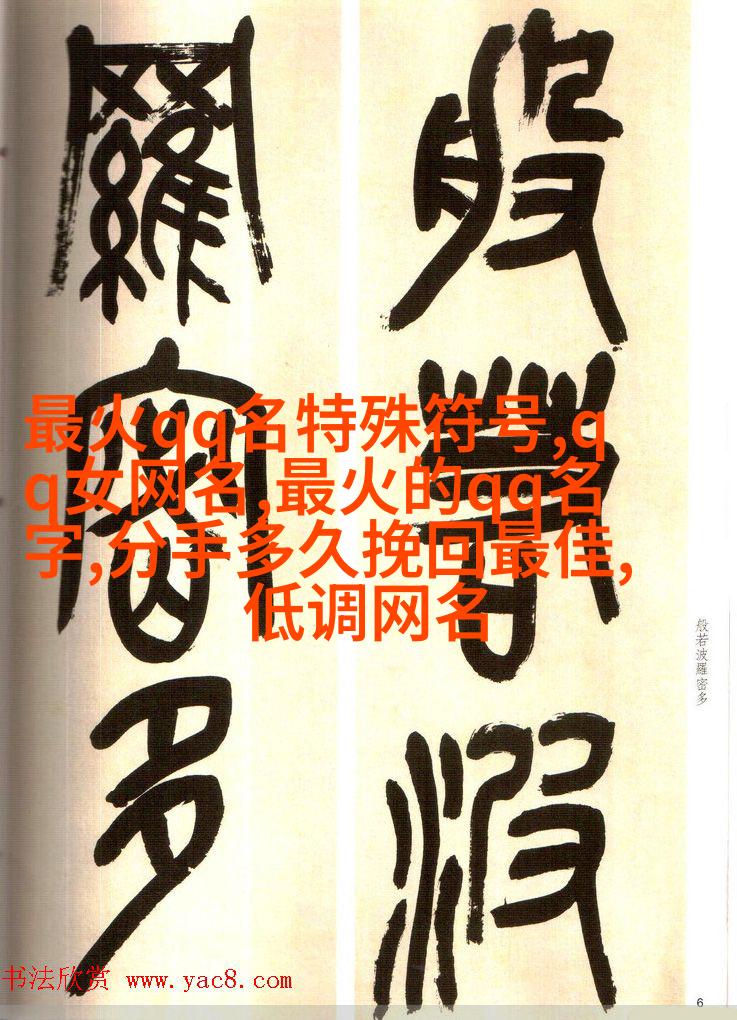 般若波
羅密多
最火qq名特殊符号,q
q女网名,最火的qq名
字,分手多久挽回最佳,
低调网名
般若波羅密多
书法欣赏 www.yac8.com
6